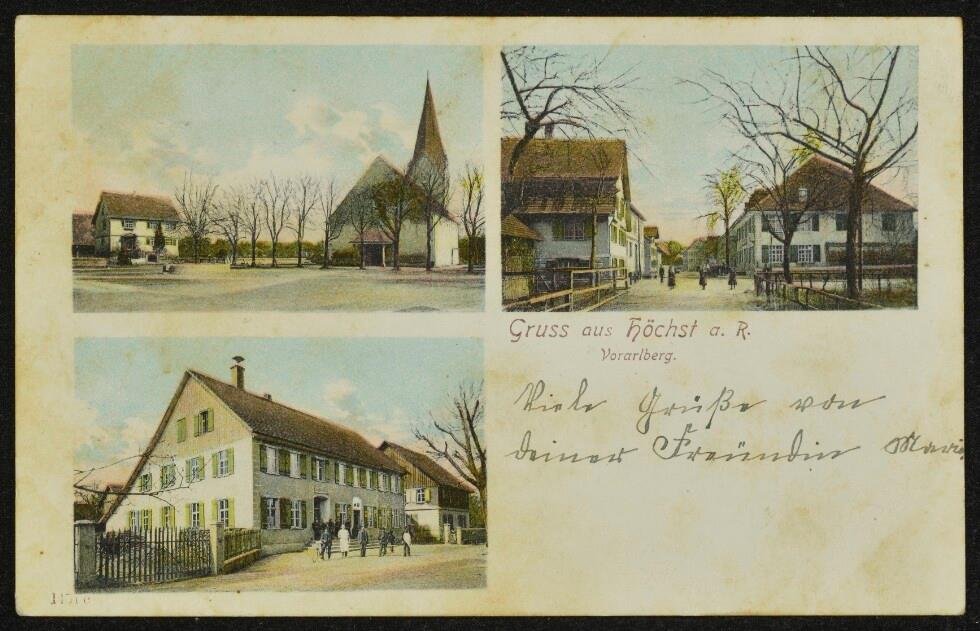 Gruss aus Höchst a. R.
Vorarlberg.
Viele Grüße von
deiner Freundin Marie